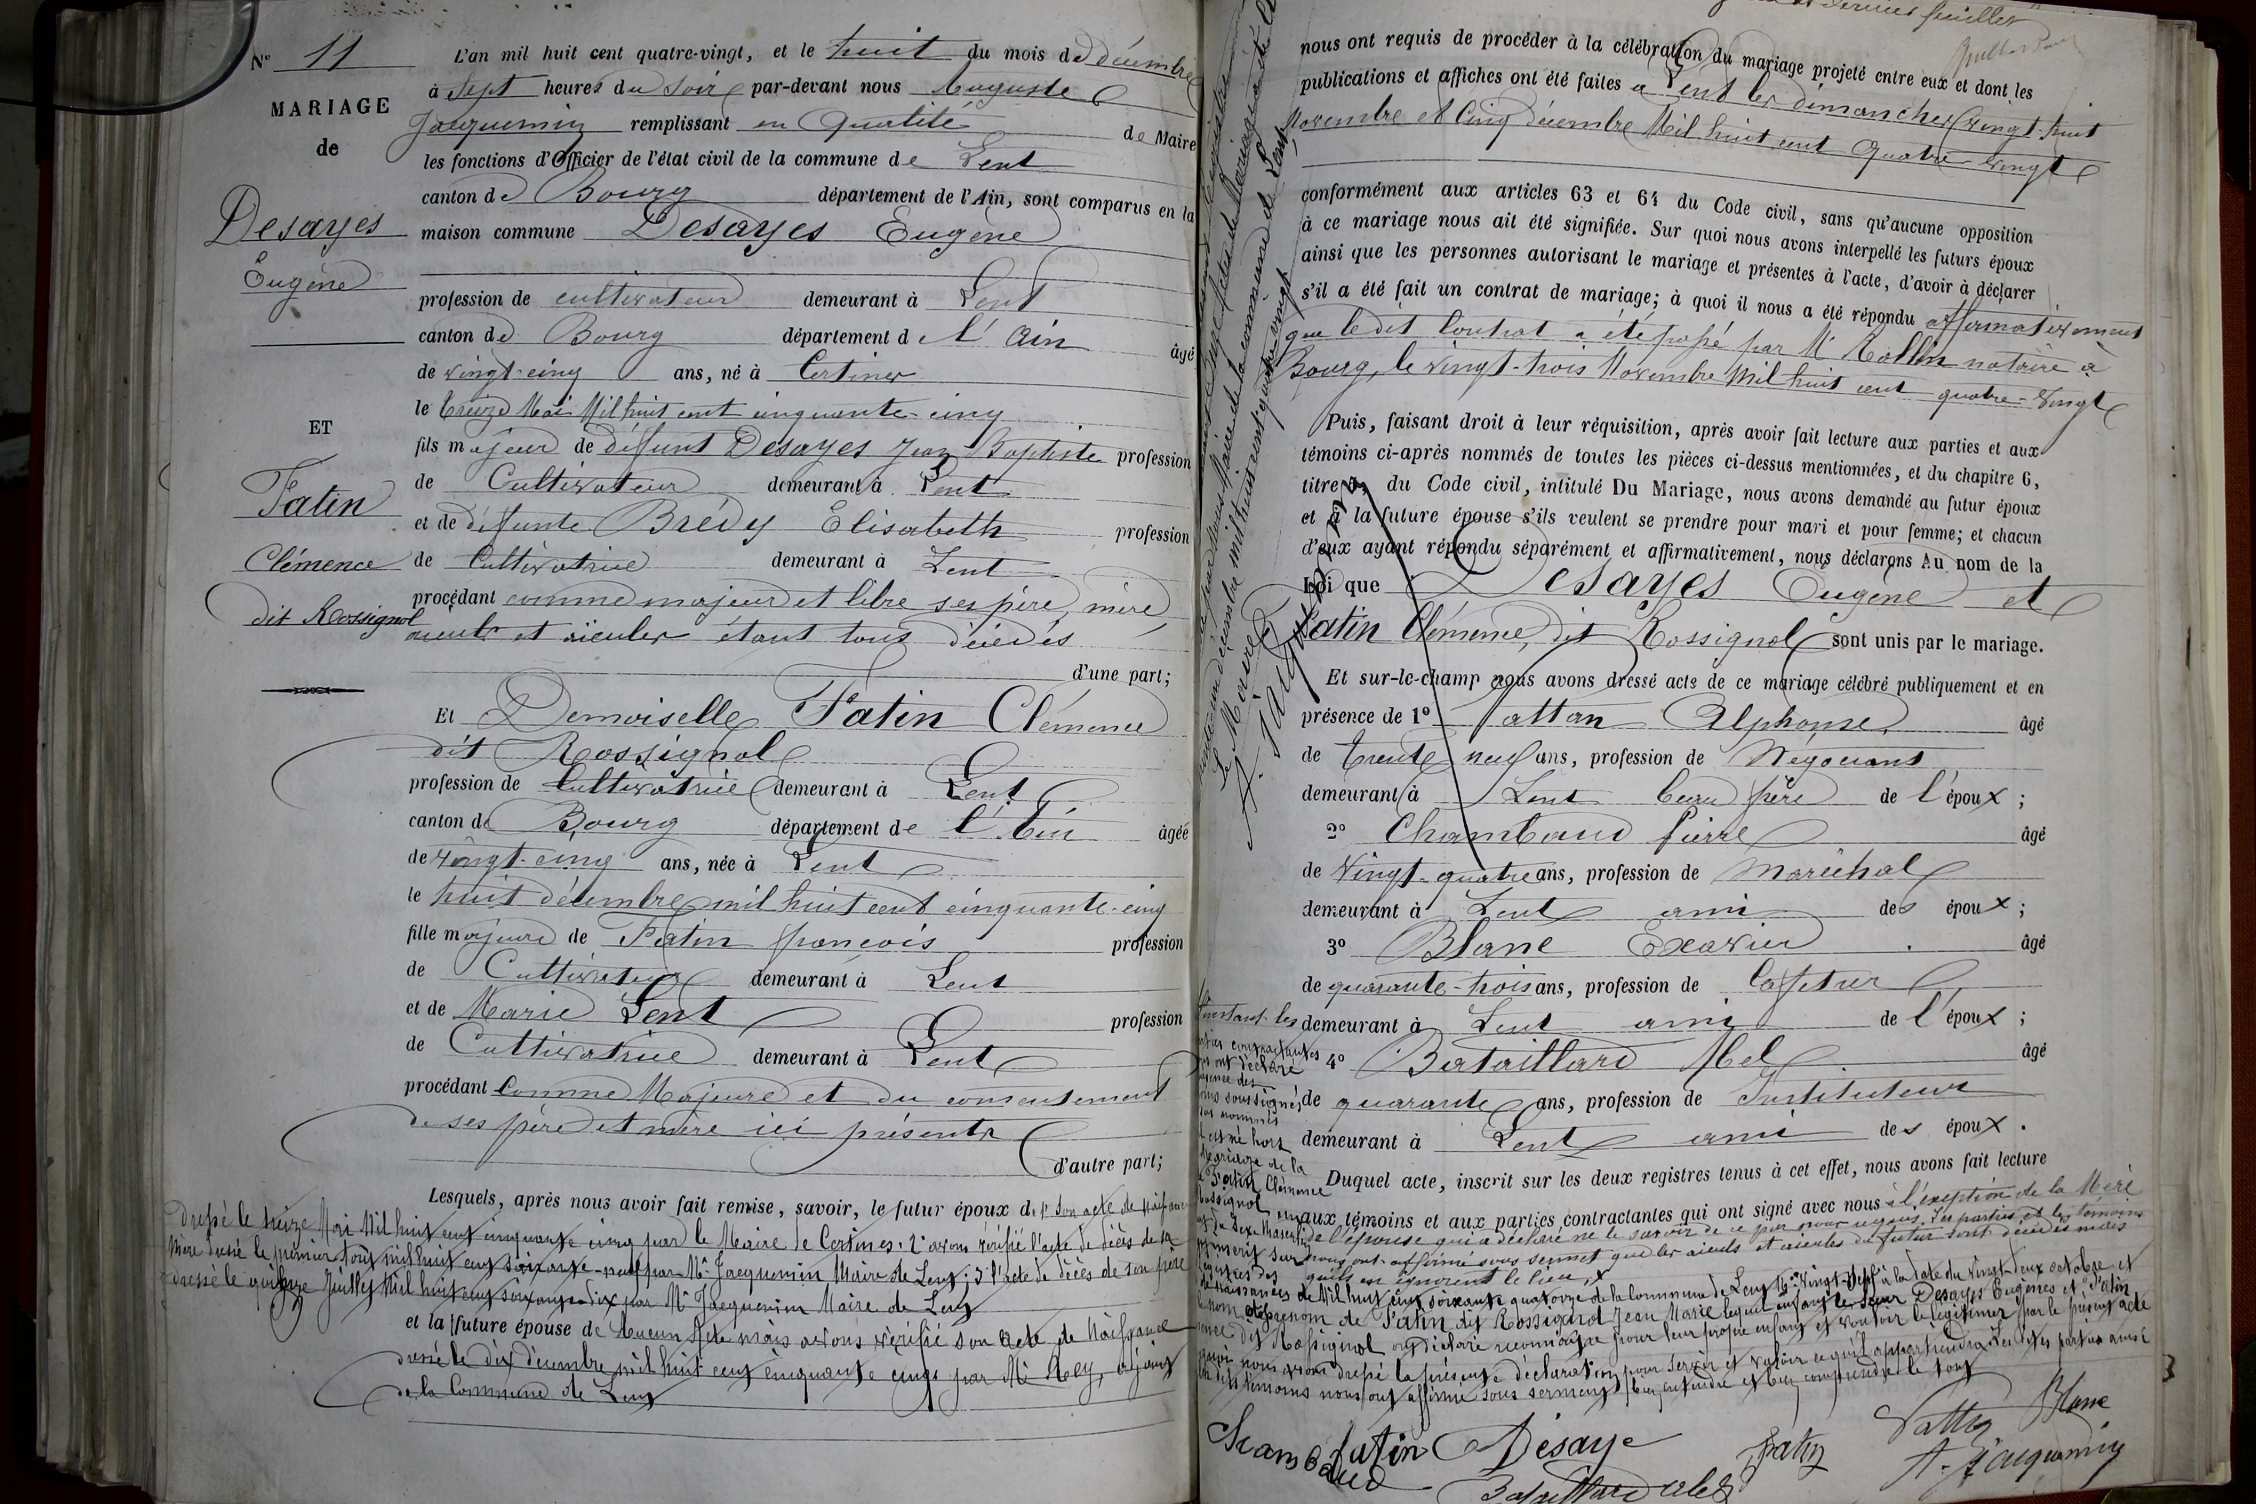 N° 11
MARIAGE
de
Desayes
Eugène
ET
Fatin
Clémence
dit Rossignol
L'an mil huit cent quatre-vingt, et le huit du mois de décembre
à Sept heures du soir par-devant nous Auguste
Jacquemin remplissant en qualité de Maire
les fonctions d'Officier de l'état civil de la commune de Lent
canton de Bourg département de l'Ain, sont comparus en la
maison commune Desayes Eugène
profession de cultivateur demeurant à Lent
canton de Bourg département de l'Ain âgé
de vingt-cinq ans, né à Certines
le treize Mai Mil huit cent cinquante-cinq
fils majeur de défunt Desayes Jean Baptiste profession
de Cultivateur demeurant à Lent
et de défunte Brédy Elisabeth profession
de Cultivatrice demeurant à Lent
procédant comme majeur et libre ses père, mère,
aieuls et aieules étant tous décédés
d'une part;
Et Demoiselle Fatin Clémence
dit Rossignol
profession de Cultivatrice demeurant à Lent
canton de Bourg département de l'Ain âgée
de vingt-cinq ans, née à Lent
le huit décembre mil huit cent cinquante-cinq
fille majeure de Fatin françois profession
de Cultivateur demeurant à Lent
et de Marie Lent profession
de Cultivatrice demeurant à Lent
procédant comme Majeure et du consentement
de ses père et mère ici présents
d'autre part;
Lesquels, après nous avoir fait remise, savoir, le futur époux de 1° Son acte de Naissance
dressé le treize Mai Mil huit cent cinquante cinq par le Maire de Certines. 2° avons vérifié l'acte de décès de sa
Mère dressé le premier Août mil huit cent soixante-neuf par Mr Jacquemin Maire de Lent; 3° l'acte de décès de son père
dressé le quinze Juillet Mil huit cent soixante-dix par Mr Jacquemin Maire de Lent
et la future épouse de Aucun Acte mais avons vérifié son acte de Naissance
dressé le dix décembre mil huit cent cinquante cinq par Mr Rey, adjoint
de la Commune de Lent
dernier feuillet
nous ont requis de procéder à la célébration du mariage projeté entre eux et dont les
publications et affiches ont été faites à Lent les dimanches vingt-huit
Novembre et Cinq décembre Mil huit cent Quatre-vingt
conformément aux articles 63 et 64 du Code civil, sans qu'aucune opposition
à ce mariage nous ait été signifiée. Sur quoi nous avons interpellé les futurs époux
ainsi que les personnes autorisant le mariage et présentes à l'acte, d'avoir à déclarer
s'il a été fait un contrat de mariage; à quoi il nous a été répondu affirmativement
que le dit Contrat a été passé par Mr Rollin notaire à
Bourg, le vingt-trois Novembre Mil huit cent quatre-vingt
Puis, faisant droit à leur réquisition, après avoir fait lecture aux parties et aux
témoins ci-après nommés de toutes les pièces ci-dessus mentionnées, et du chapitre 6,
titre 5, du Code civil, intitulé Du Mariage, nous avons demandé au futur époux
et à la future épouse s'ils veulent se prendre pour mari et pour femme; et chacun
d'eux ayant répondu séparément et affirmativement, nous déclarons Au nom de la
Loi que Desayes Eugène et
Fatin Clémence, dit Rossignol sont unis par le mariage.
Et sur-le-champ nous avons dressé acte de ce mariage célébré publiquement et en
présence de 1° Vattan Alphonse âgé
de trente neuf ans, profession de Négociant
demeurant à Lent beau frère de l'époux;
2° Chambaud Pierre âgé
de vingt-quatre ans, profession de Maréchal
demeurant à Lent ami des époux;
3° Blanc Exavier âgé
de quarante-trois ans, profession de Cafetier
demeurant à Lent ami de l'époux;
4° Bataillard Abel âgé
de quarante ans, profession de Instituteur
demeurant à Lent ami des époux.
Duquel acte, inscrit sur les deux registres tenus à cet effet, nous avons fait lecture
aux témoins et aux parties contractantes qui ont signé avec nous à l'exeption de la Mère
de l'épouse qui a déclaré ne le savoir de ce par nous requis. Les parties et les témoins
nous ont affirmé sous serment que les aieuls et aieules du futur sont décédés mais
qu'ils en ignorent le lieu,
l'instant les
parties contractantes
ont déclaré
présence des
témoins soussignés
nommés
est né hors
Mariage de la
Fatin Clémence
Rossignol un
du Sexe Masculin
inscrit sur
registres des
naissances de Mil huit cent soixante quatorze de la Commune de Lent N° Vingt-sept à la date du vingt deux octobre et
le nom et prénom de Fatin dit Rossignol Jean Marie lequel enfant le Sieur Desayes Eugène et Fatin
Clémence dit Rossignol ont déclaré reconnaître pour leur propre enfant et vouloir le légitimer par le présent acte
quoi nous avons dressé la présente déclaration pour servir et valoir ce qu'il appartiendra. Les dites parties ainsi
que les témoins nous ont affirmé sous serment bien entendre et bien comprendre le tout
Chambaud
fatin
Désaye
Bataillard abel
fatin
Vattan
Blanc
A. Jacquemin
Le Maire
A. Jacquemin